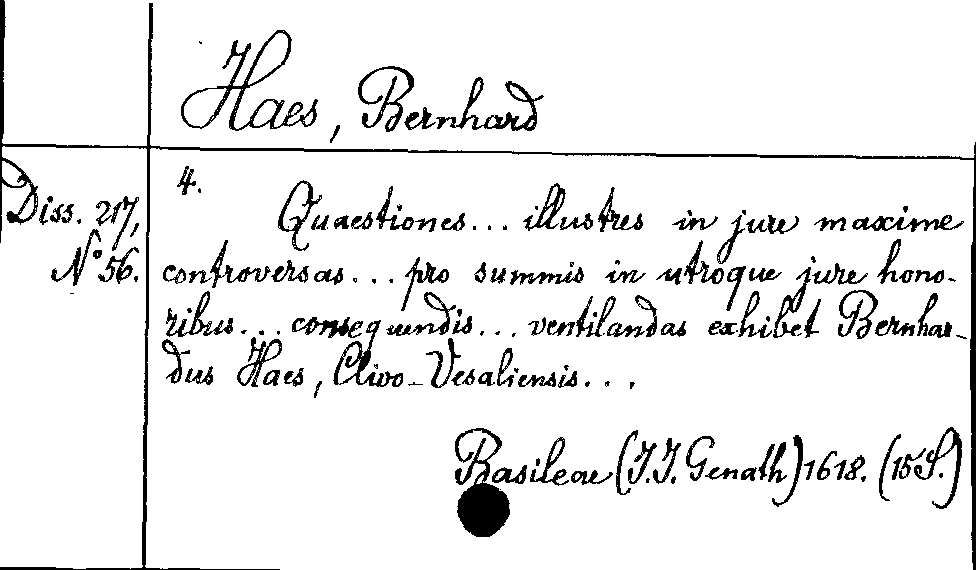 Haes, Bernhard
4.
Diss. 217,
No 56.
Quaestiones... illustres in jure maxime
controversas... pro summis in utroque jure hono-
ribus... consequendis... ventilandas exhibet Bernhar-
dus Haes, Clivo-Vesaliensis...
Basileae (J.J. Genath) 1618. (15 S.)